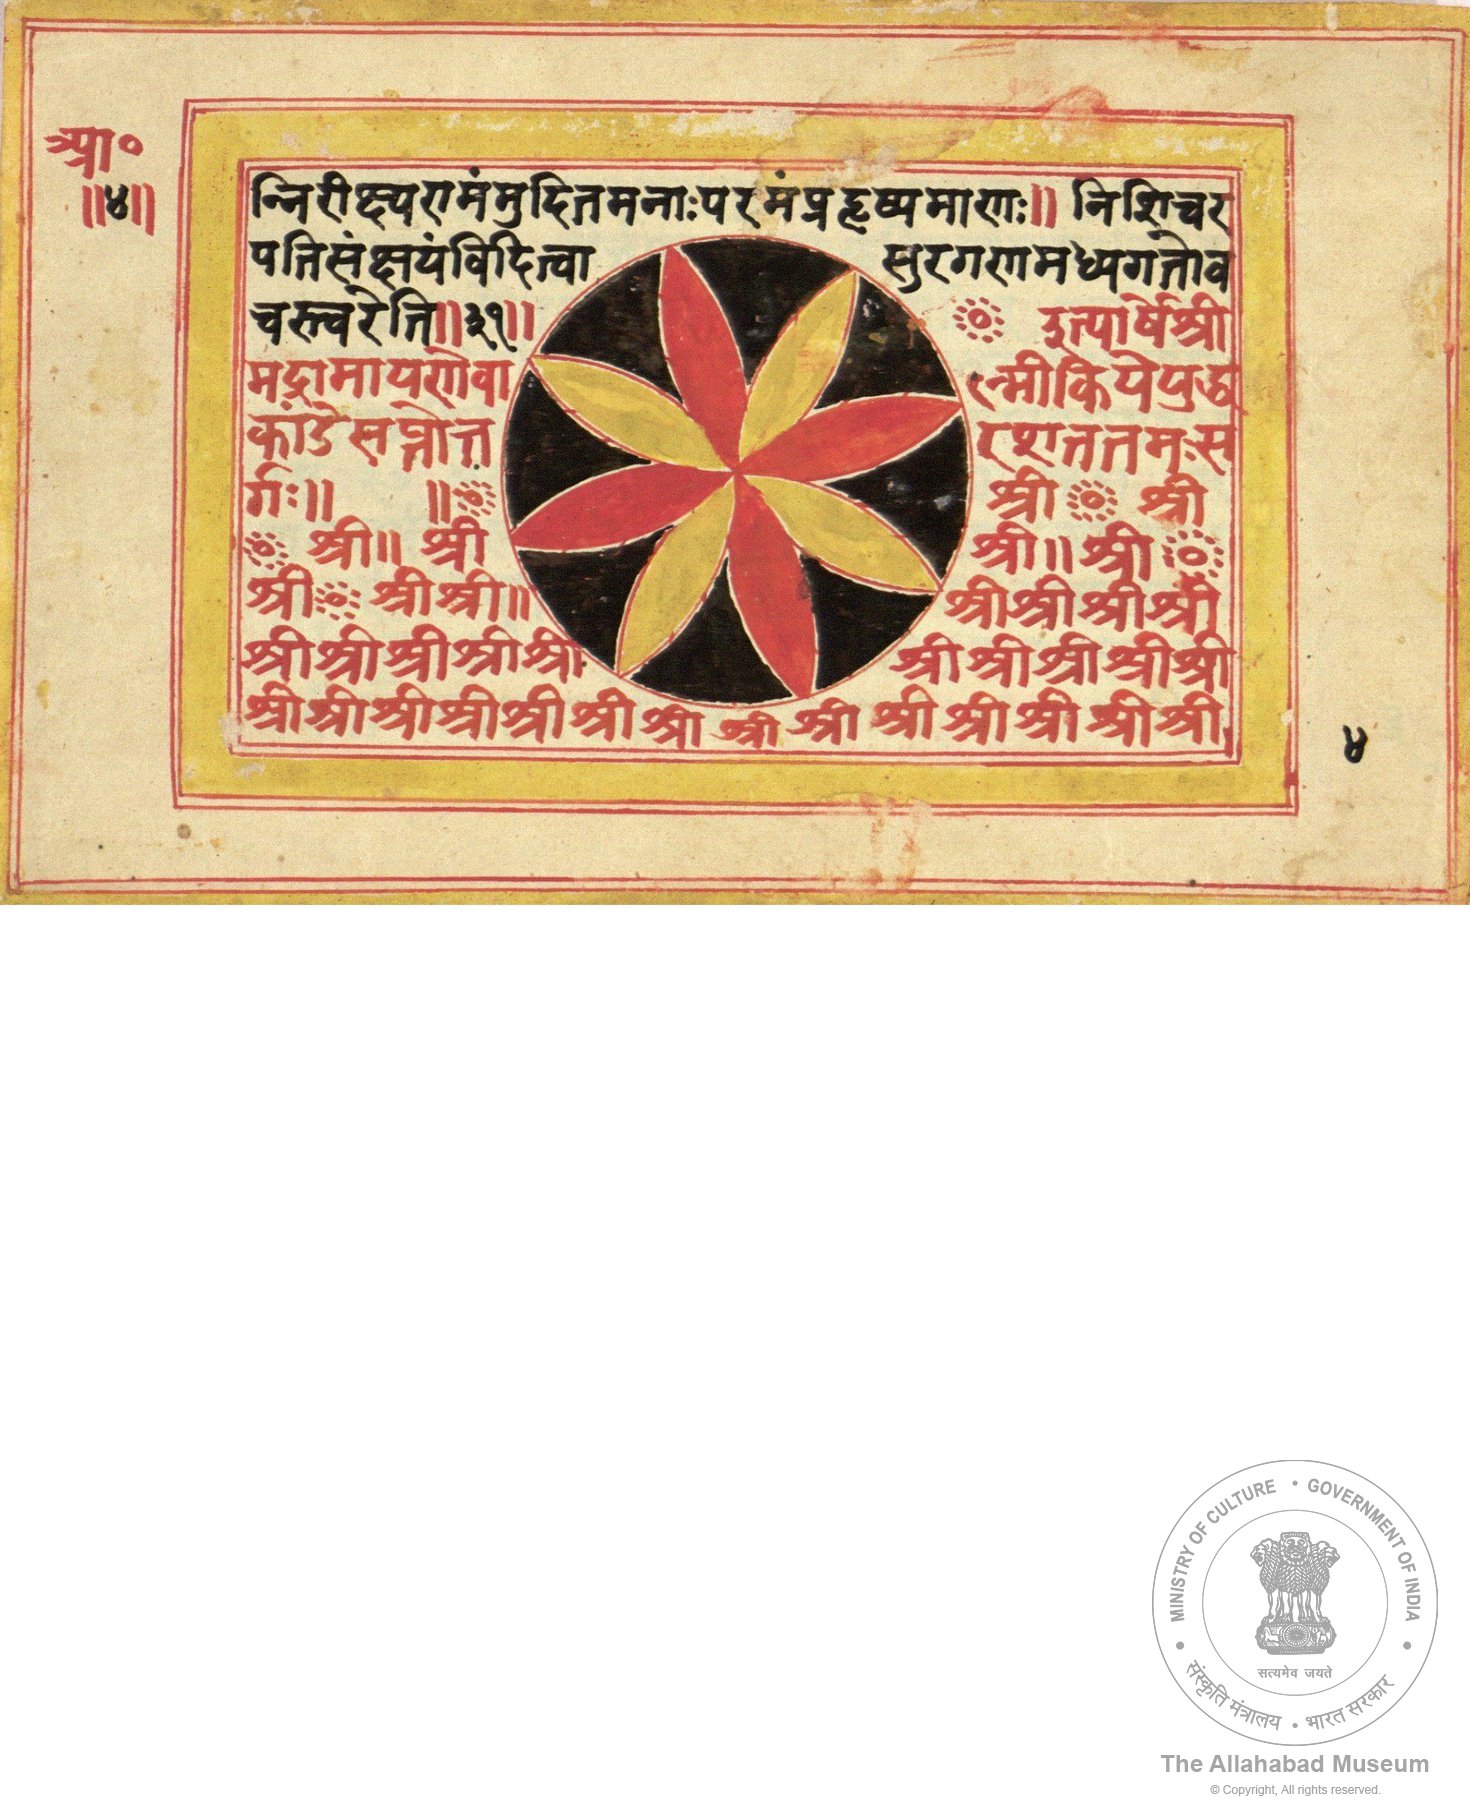 आ०
॥४॥
न्निरीक्ष्यरामंमुदितमनाःपरमंप्रहृष्यमाणः॥ निशिचर
पतिसंक्षयंविदित्वा सुरगणमध्यगतोव
चस्त्वरेति॥३१॥ इत्यार्षेश्री
मद्रामायणेवा ल्मीकियेयुद्ध
कांडेसप्तोत्त रशततमःस
र्गः॥ ॥ श्री श्री
श्री॥ श्री श्री॥श्री
श्री श्रीश्री॥ श्रीश्रीश्रीश्री
श्रीश्रीश्रीश्रीश्री श्रीश्रीश्रीश्रीश्री
श्रीश्रीश्रीश्रीश्रीश्रीश्रीश्रीश्रीश्रीश्रीश्रीश्रीश्री
४
MINISTRY OF CULTURE • GOVERNMENT OF INDIA
सत्यमेव जयते
संस्कृति मंत्रालय • भारत सरकार
The Allahabad Museum
© Copyright, All rights reserved.